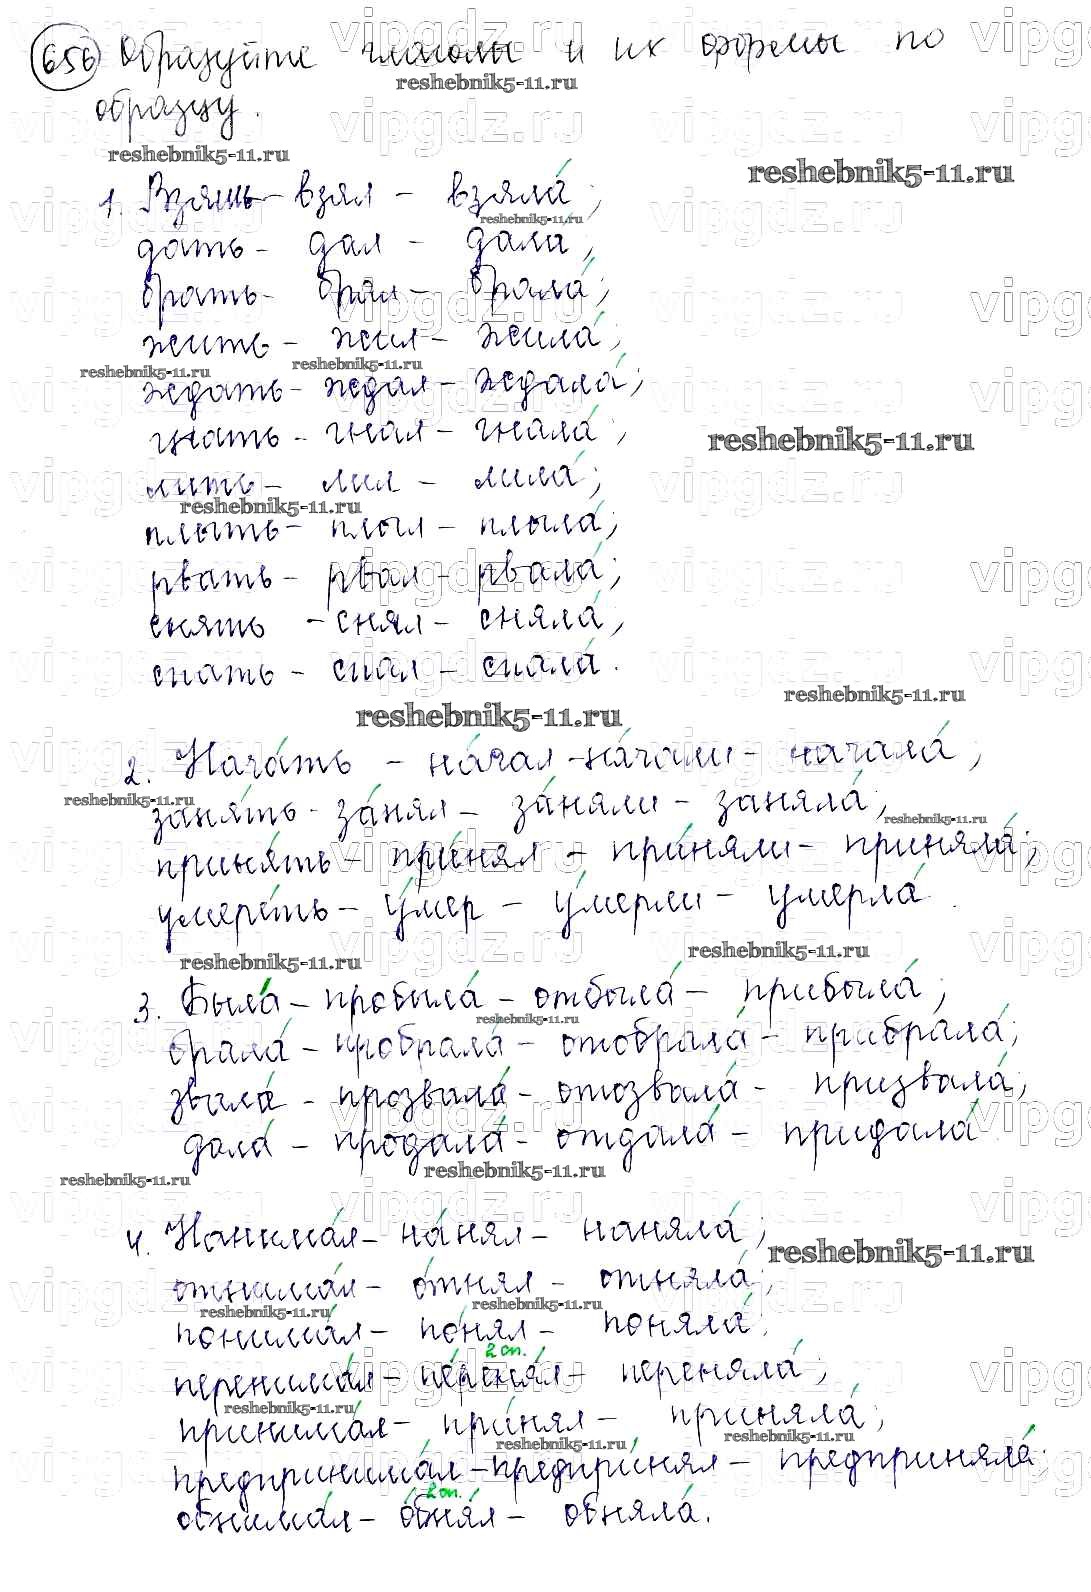 656 Образуйте глаголы и их формы по
образцу.
1. Взять - взял - взяла́;
дать - дал - дала́;
брать - брал - брала́;
жить - жил - жила́;
ждать - ждал - ждала́;
гнать - гнал - гнала́;
лить - лил - лила́;
плыть - плыл - плыла́;
рвать - рвал - рвала́;
снять - снял - сняла́;
спать - спал - спала́.
2. Нача́ть - на́чал - на́чали - начала́;
заня́ть - за́нял - за́няли - заняла́;
приня́ть - при́нял - при́няли - приняла́;
умере́ть - у́мер - у́мерли - умерла́.
3. Была́ - пробыла́ - отбыла́ - прибыла́;
брала́ - пробрала́ - отобрала́ - прибрала́;
звала́ - прозвала́ - отозвала́ - призвала́;
дала́ - продала́ - отдала́ - придала́
4. Нанима́л - на́нял - наняла́;
отнима́л - о́тнял - отняла́;
понима́л - по́нял - поняла́;
2 сп.
перенима́л - пе́реня́л - переняла́;
принима́л - при́нял - приняла́;
предпринима́л - предпри́нял - предприняла́;
2 сп.
обнима́л - о́бня́л - обняла́.
reshebnik5-11.ru
vipgdz.ru